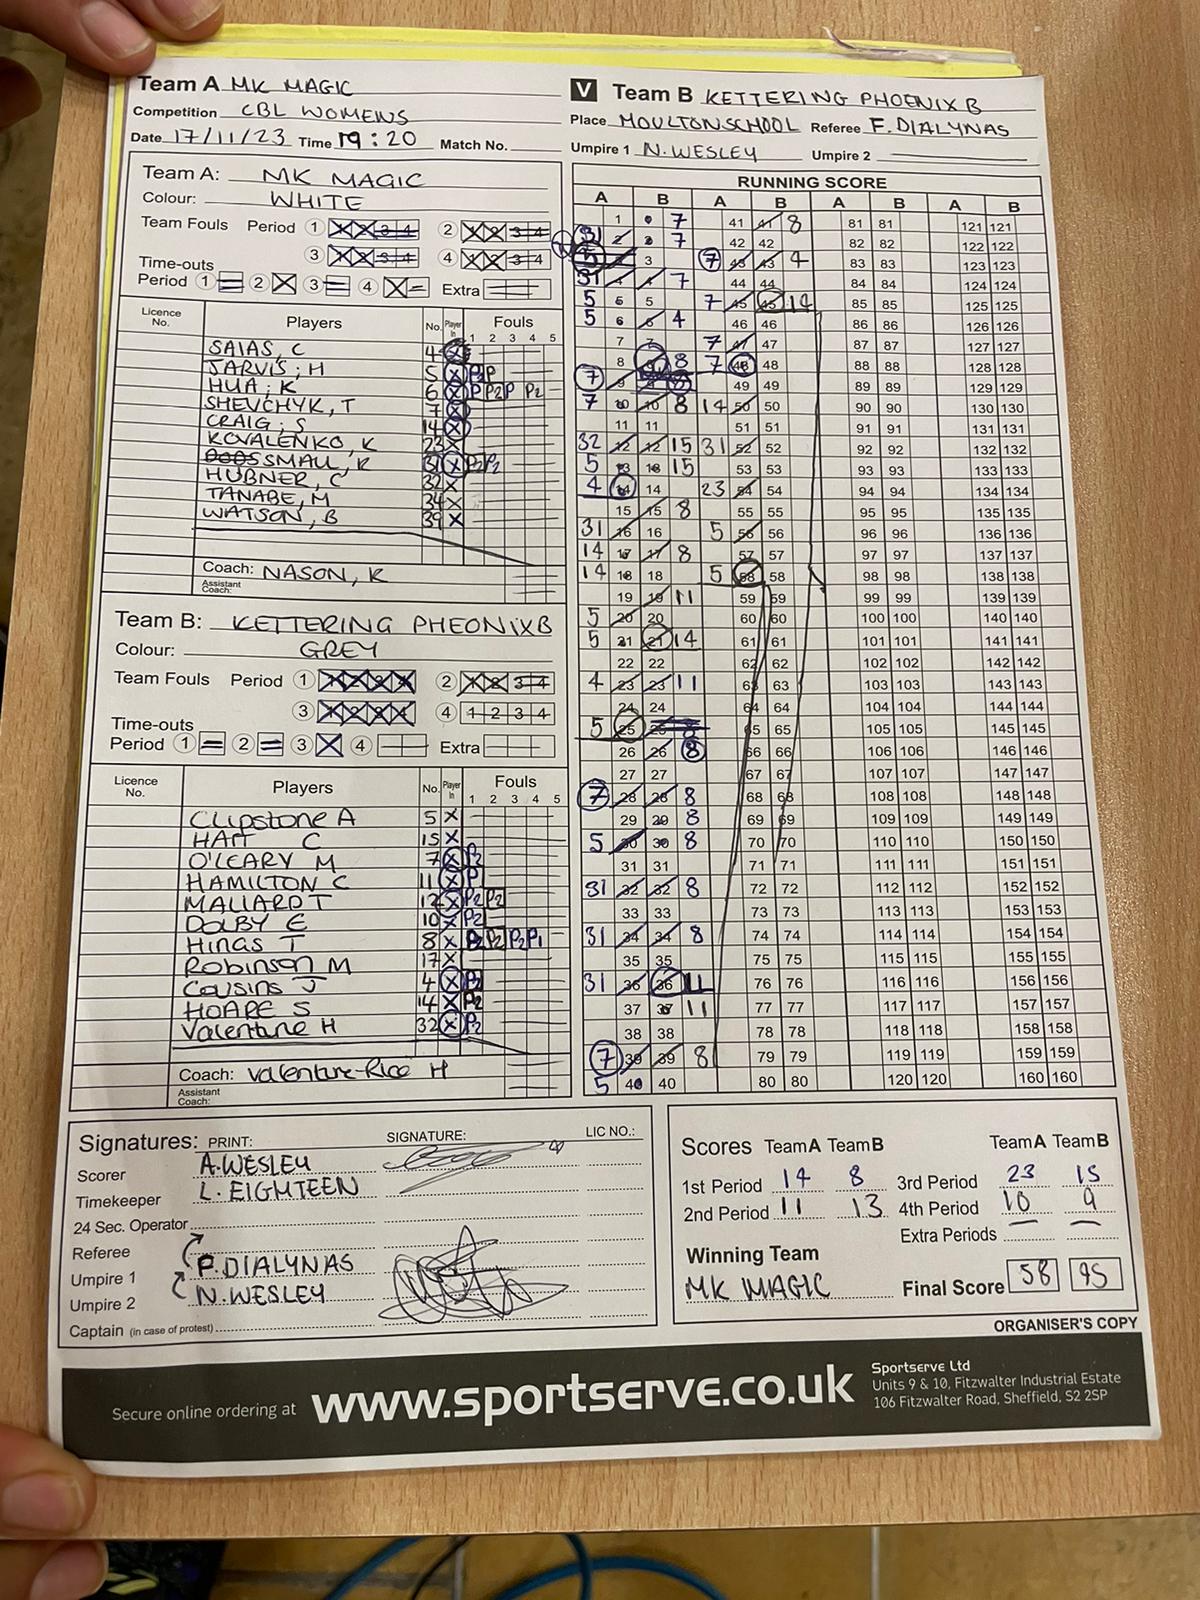 Team A MK MAGIC V Team B KETTERING PHOENIX B
Competition CBL WOMENS Place MOULTON SCHOOL Referee F. DIALYNAS
Date 17/11/23 Time 19:20 Match No. Umpire 1 N. WESLEY Umpire 2
Team A: MK MAGIC
Colour: WHITE
Team Fouls Period 1 1 2 3 4 2 1 2 3 4
3 1 2 3 4 4 1 2 3 4
Time-outs
Period 1 2 3 4 Extra
Licence No. Players No. Player In Fouls
1 2 3 4 5
SAIAS, C 4 X
JARVIS, H 5 X P2 P
HUA, K 6 X P P2 P P2
SHEVCHYK, T 7 X
CRAIG, S 14 X
KOVALENKO, K 23 X
SMALL, K 31 X P2 P2
HUBNER, C 32 X
TANABE, M 34 X
WATSON, B 39 X
Coach: NASON, K
Assistant Coach:
Team B: KETTERING PHEONIX B
Colour: GREY
Team Fouls Period 1 1 2 3 4 2 1 2 3 4
3 1 2 3 4 4 1 2 3 4
Time-outs
Period 1 2 3 4 Extra
Licence No. Players No. Player In Fouls
1 2 3 4 5
Clipstone A 5 X
HAM C 15 X
O'LEARY M 7 X P2
HAMILTON C 11 X P
MALLARD T 12 X P2 P2
DOLBY E 10 X P2
HINGS T 8 X P2 P2 P2 P1
Robinson M 17 X
Cousins J 4 X P2
HOARE S 14 X P2
Valentine H 32 X P2
Coach: Valenture-Rice H
Assistant Coach:
RUNNING SCORE
A B A B A B A B
1 7 41 41 8 81 81 121 121
31 2 7 42 42 82 82 122 122
3 3 7 43 43 4 83 83 123 123
31 4 4 7 44 44 84 84 124 124
5 5 5 7 45 45 14 85 85 125 125
5 6 6 4 46 46 86 86 126 126
7 7 7 47 47 87 87 127 127
8 8 8 7 48 48 88 88 128 128
7 9 49 49 89 89 129 129
7 10 10 8 14 50 50 90 90 130 130
11 11 51 51 91 91 131 131
32 12 12 15 31 52 52 92 92 132 132
5 13 13 15 53 53 93 93 133 133
4 14 14 23 54 54 94 94 134 134
15 15 8 55 55 95 95 135 135
31 16 16 5 56 56 96 96 136 136
14 17 17 8 57 57 97 97 137 137
14 18 18 5 58 58 98 98 138 138
19 19 11 59 59 99 99 139 139
5 20 20 60 60 100 100 140 140
5 21 21 14 61 61 101 101 141 141
22 22 62 62 102 102 142 142
4 23 23 11 63 63 103 103 143 143
24 24 64 64 104 104 144 144
5 25 25 65 65 105 105 145 145
26 26 8 66 66 106 106 146 146
27 27 67 67 107 107 147 147
7 28 28 8 68 68 108 108 148 148
29 29 8 69 69 109 109 149 149
5 30 30 8 70 70 110 110 150 150
31 31 71 71 111 111 151 151
31 32 32 8 72 72 112 112 152 152
33 33 73 73 113 113 153 153
31 34 34 8 74 74 114 114 154 154
35 35 75 75 115 115 155 155
31 36 36 11 76 76 116 116 156 156
37 37 11 77 77 117 117 157 157
38 38 78 78 118 118 158 158
7 39 39 8 79 79 119 119 159 159
5 40 40 80 80 120 120 160 160
Signatures: PRINT: SIGNATURE: LIC NO.:
Scorer A. WESLEY
Timekeeper L. EIGHTEEN
24 Sec. Operator
Referee F. DIALYNAS
Umpire 1 N. WESLEY
Umpire 2
Captain (in case of protest)
Scores Team A Team B Team A Team B
1st Period 14 8 3rd Period 23 15
2nd Period 11 13 4th Period 10 9
Extra Periods
Winning Team
MK MAGIC Final Score 58 45
ORGANISER'S COPY
Secure online ordering at www.sportserve.co.uk
Sportserve Ltd
Units 9 & 10, Fitzwalter Industrial Estate
106 Fitzwalter Road, Sheffield, S2 2SP